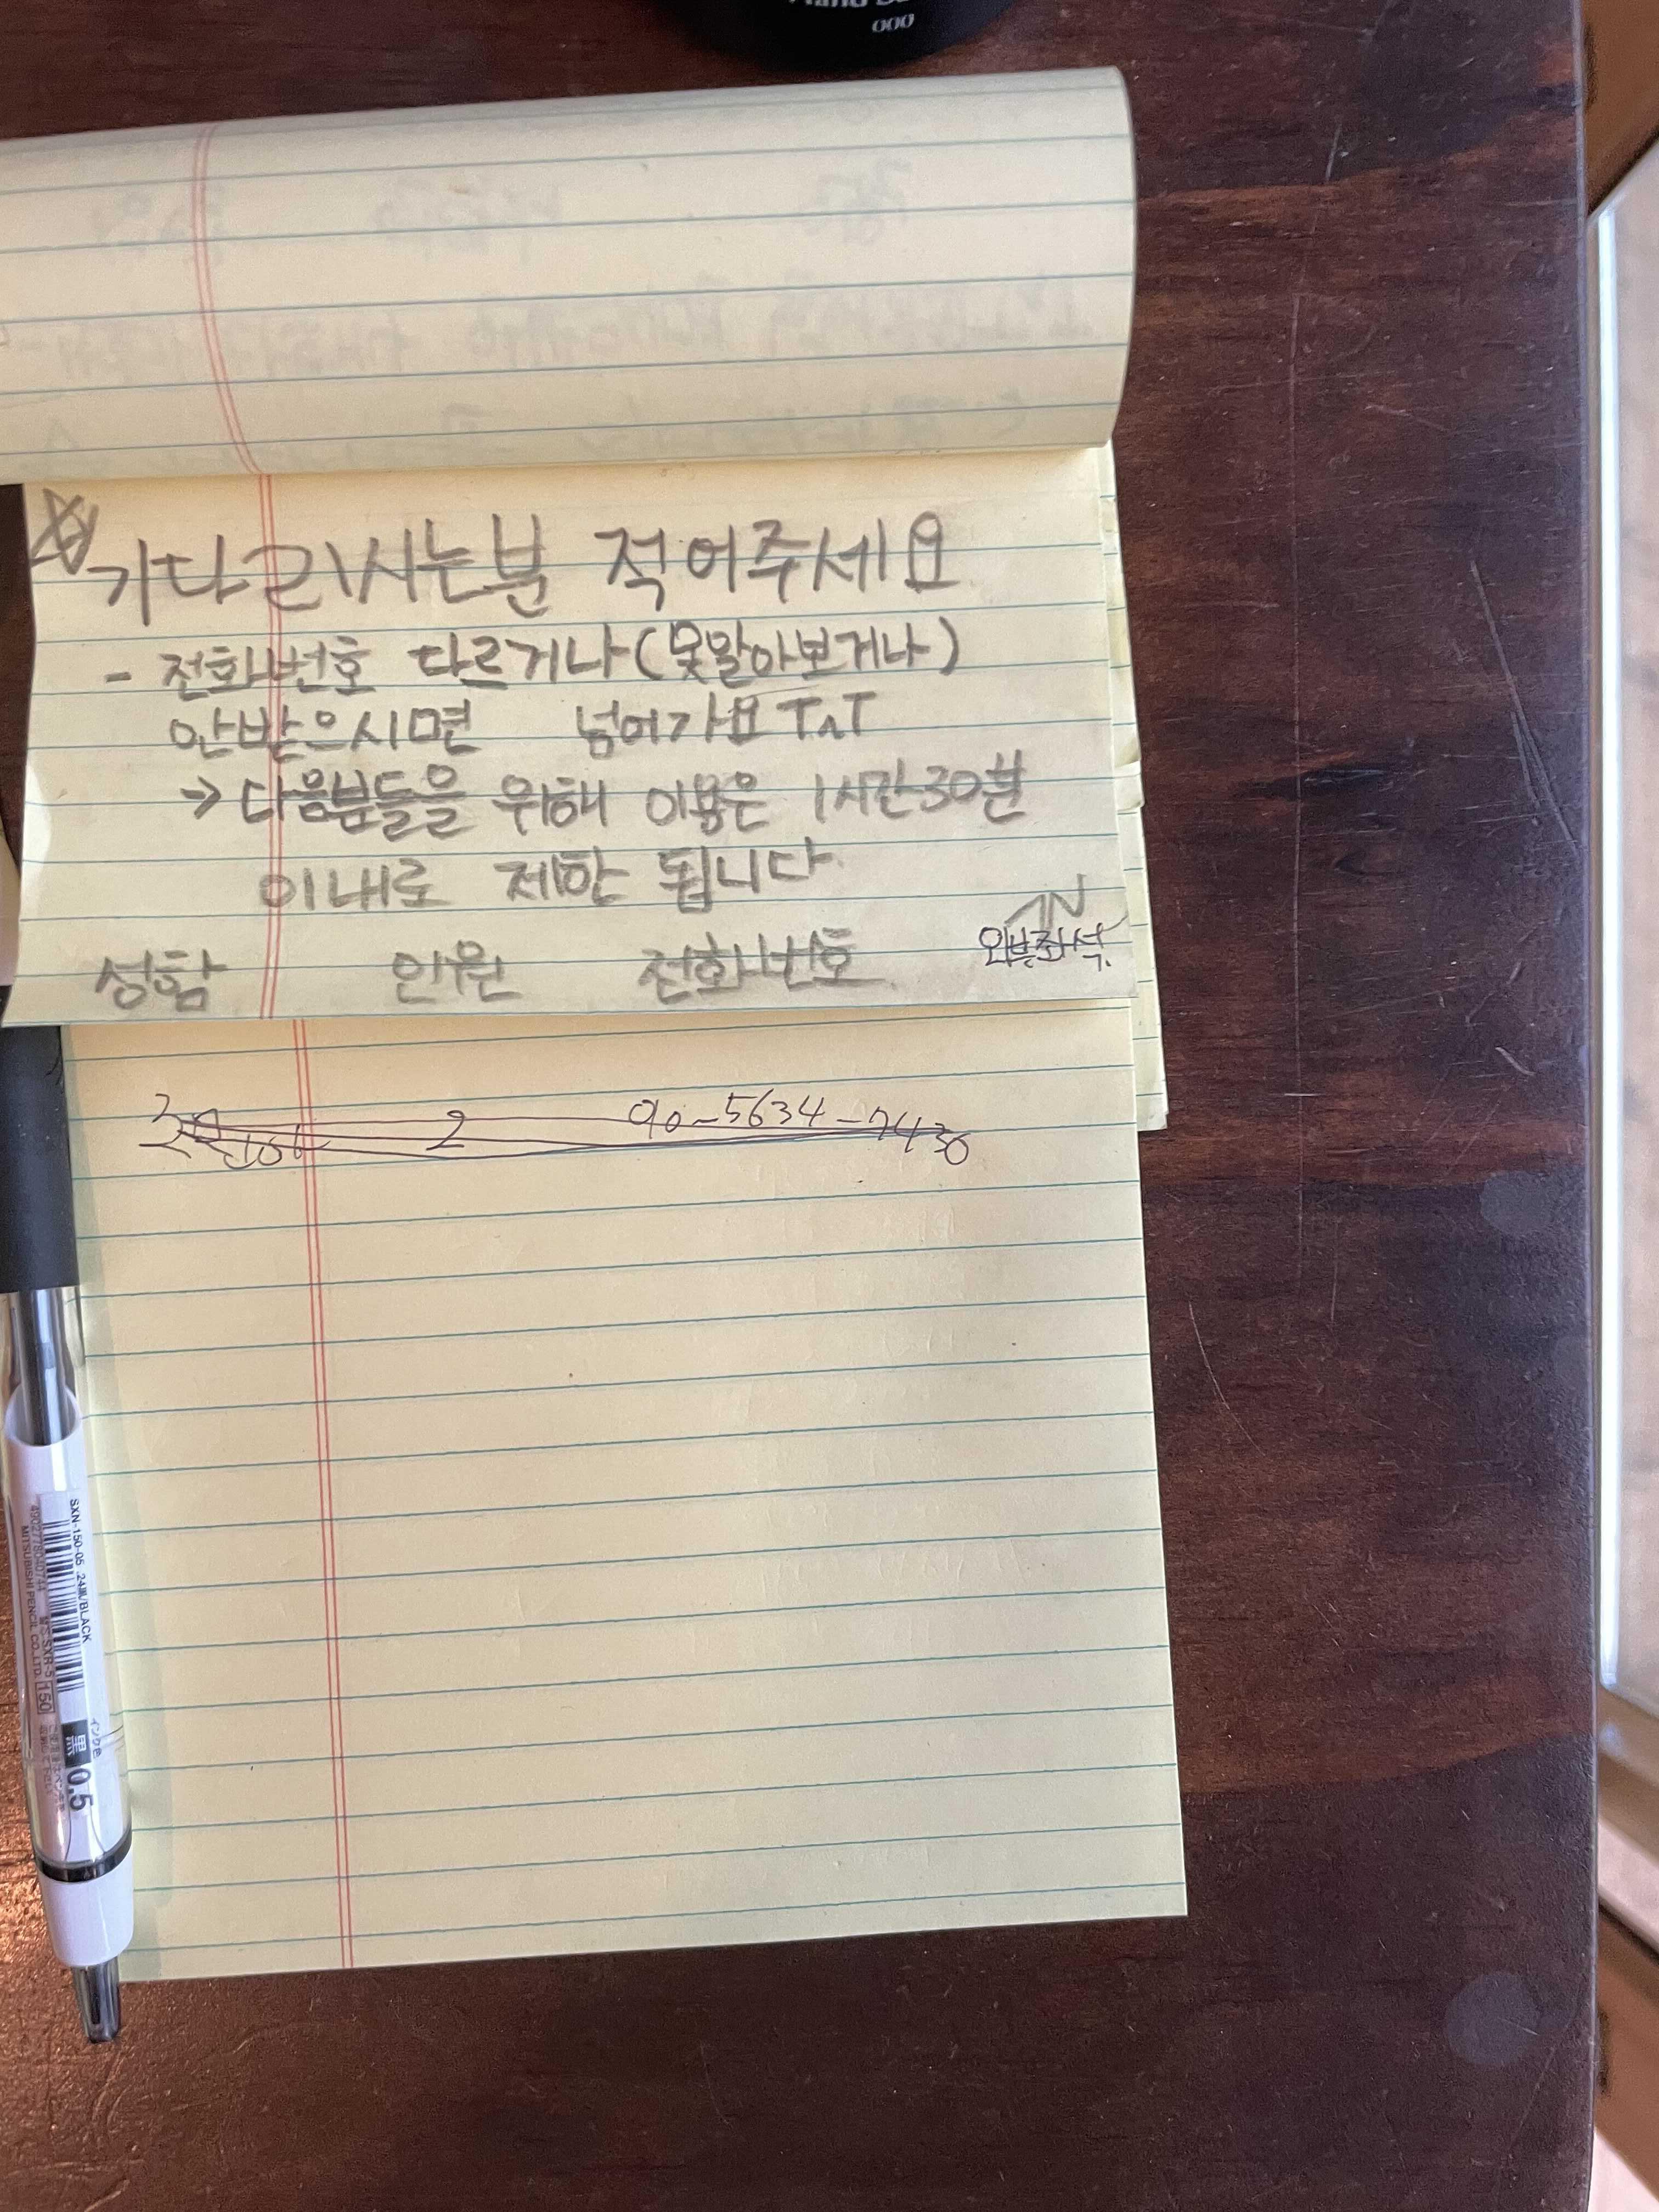 000
☆ 기다리시는분 적어주세요
- 전화번호 다르거나 (못알아보거나)
안받으시면 넘어가요 TㅅT
→ 다음분들을 위해 이용은 1시간30분
이내로 제한 됩니다.
성함 인원 전화번호. 외부좌석
2 90-5634-7430
SXN-150-05 .24黒/BLACK
4902778040744
MITSUBISHI PENCIL CO., LTD.
インク色
黒 0.5